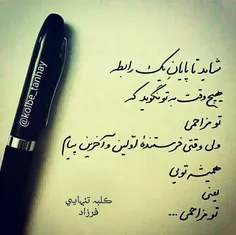 شاید تا پایان یک رابطه
هیچ وقت به تو نگوید که
تو مزاحمی
ولی وقتی فرستندهٔ اولین و آخرین پیام
همیشه تویی
یعنی
تو مزاحمی ...
کلبه تنهایی
فرزاد
@kolbe_tanhay